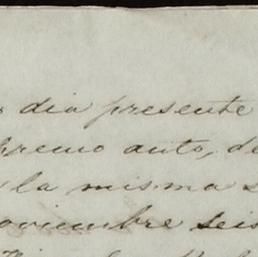 dia presente
premo auto, de
la misma s
oviembre seis